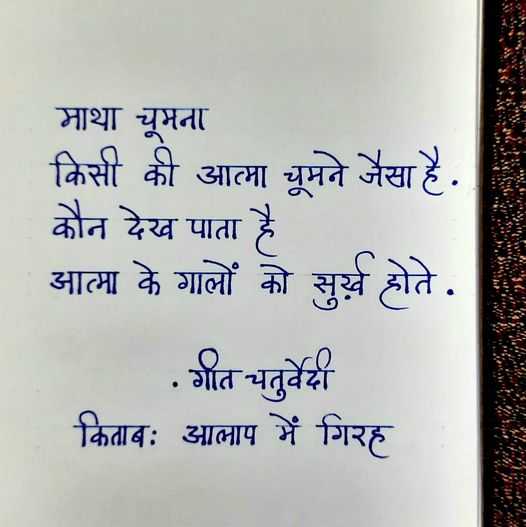 माथा चूमना
किसी की आत्मा चूमने जैसा है.
कौन देख पाता है
आत्मा के गालों को सुर्ख़ होते.
. गीत चतुर्वेदी
किताब: आलाप में गिरह